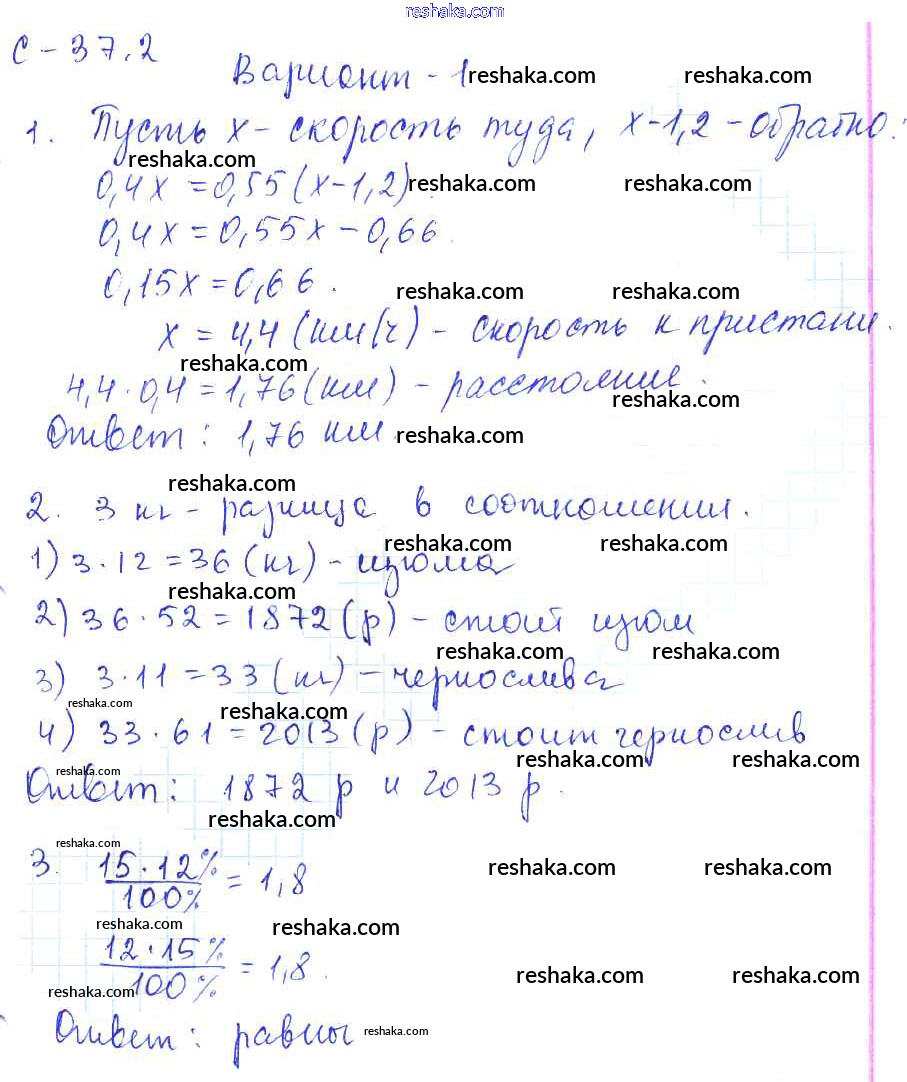 reshaka.com
С-37.2
Вариант-1 reshaka.com reshaka.com
1. Пусть x - скорость туда, x-1,2 - обратно.
reshaka.com
0,4x = 0,55(x-1,2) reshaka.com reshaka.com
0,4x = 0,55x - 0,66.
0,15x = 0,66.
reshaka.com reshaka.com
x = 4,4 (км/ч) - скорость к пристани.
reshaka.com
4,4 · 0,4 = 1,76 (км) - расстояние.
reshaka.com
Ответ: 1,76 км. reshaka.com
reshaka.com
2. 3 кг - разница в соотношении.
reshaka.com reshaka.com
1) 3 · 12 = 36 (кг) - изюма
reshaka.com
2) 36 · 52 = 1872 (р) - стоит изюм
reshaka.com reshaka.com
3) 3 · 11 = 33 (кг) - чернослива
reshaka.com reshaka.com
4) 33 · 61 = 2013 (р) - стоит чернослив
reshaka.com reshaka.com
reshaka.com
Ответ: 1872 р и 2013 р.
reshaka.com
reshaka.com
3. 15 · 12% / 100% = 1,8 reshaka.com reshaka.com
reshaka.com reshaka.com
12 · 15% / 100% = 1,8.
reshaka.com reshaka.com
reshaka.com
Ответ: равны reshaka.com